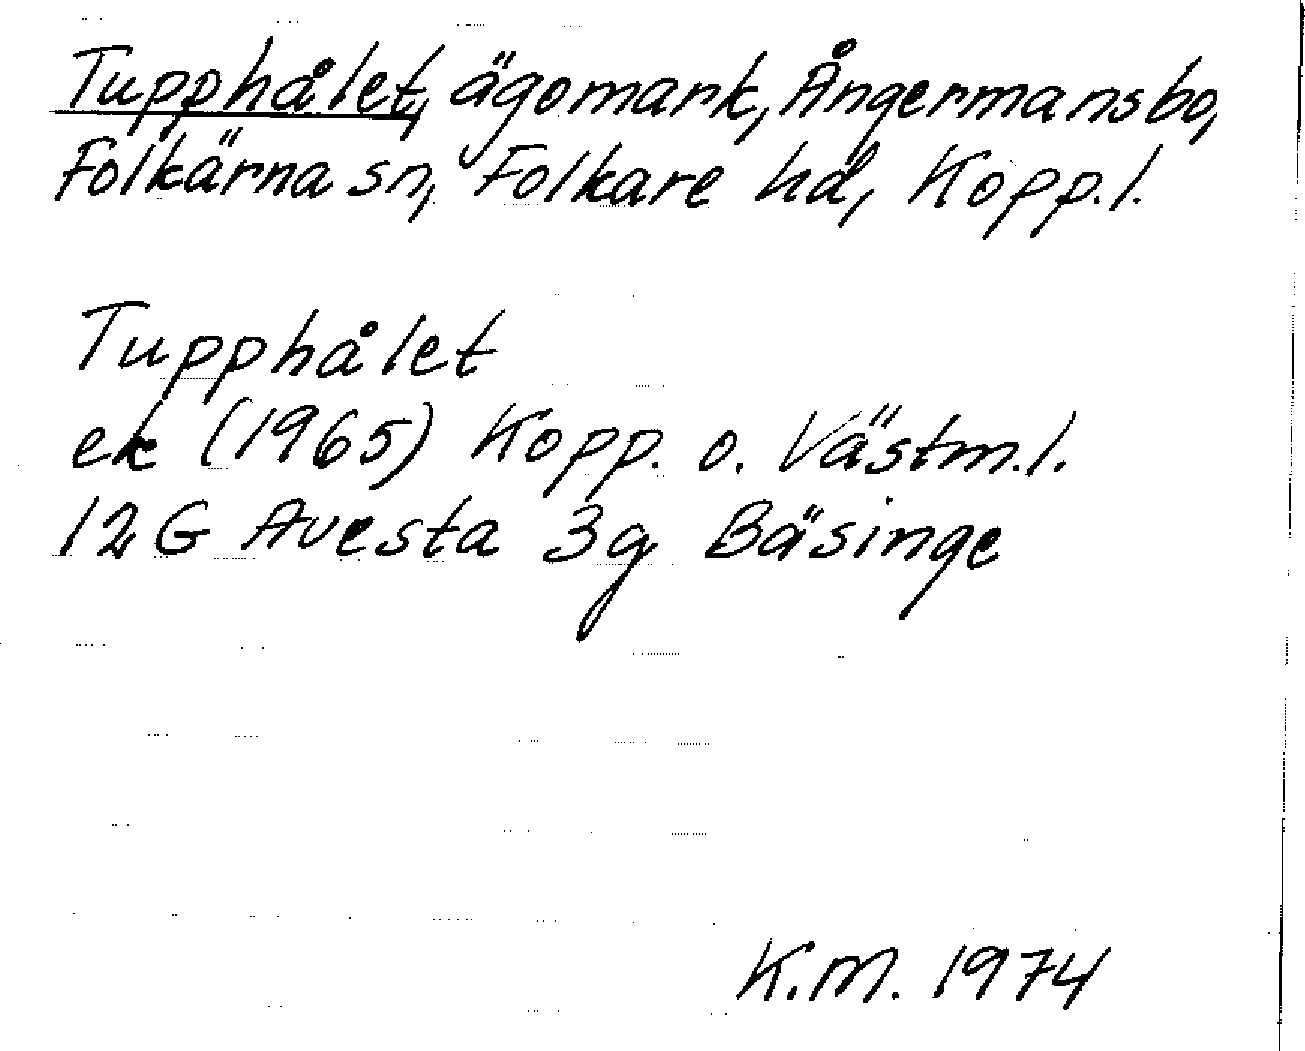 Tupphålet, ägomark, Ångermansbo,
Folkärna sn, Folkare hd, Kopp.l.
Tupphålet
ek (1965) Kopp. o. Västm.l.
12 G Avesta 3g Bäsinge
K.M. 1974